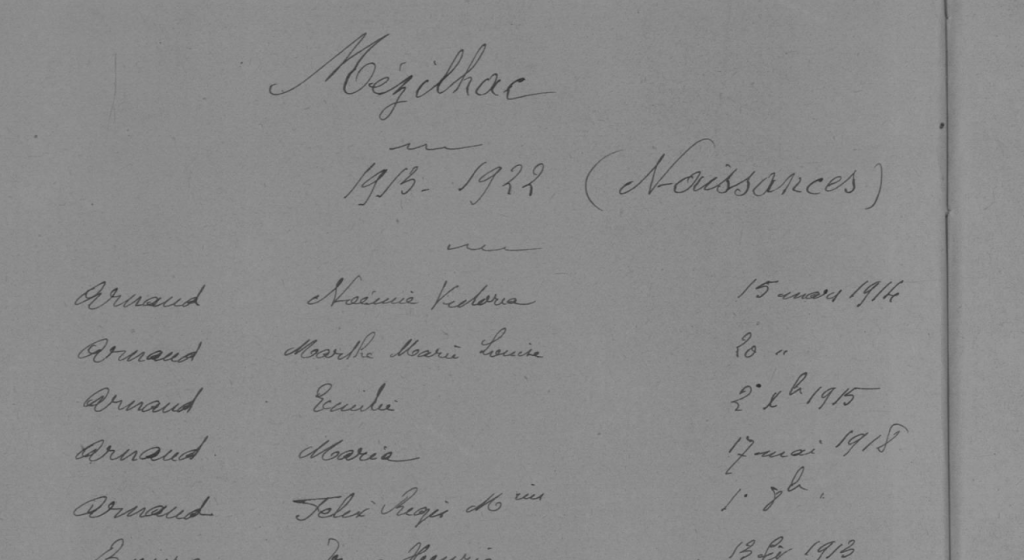 Mézilhac
1913 - 1922 (Naissances)
Arnaud Noémie Victoria 15 mars 1914
Arnaud Marthe Marie Louise 20 "
Arnaud Emilie 2 Xb 1915
Arnaud Maria 17 mai 1918
Arnaud Felix Regis M 1.
13 1913